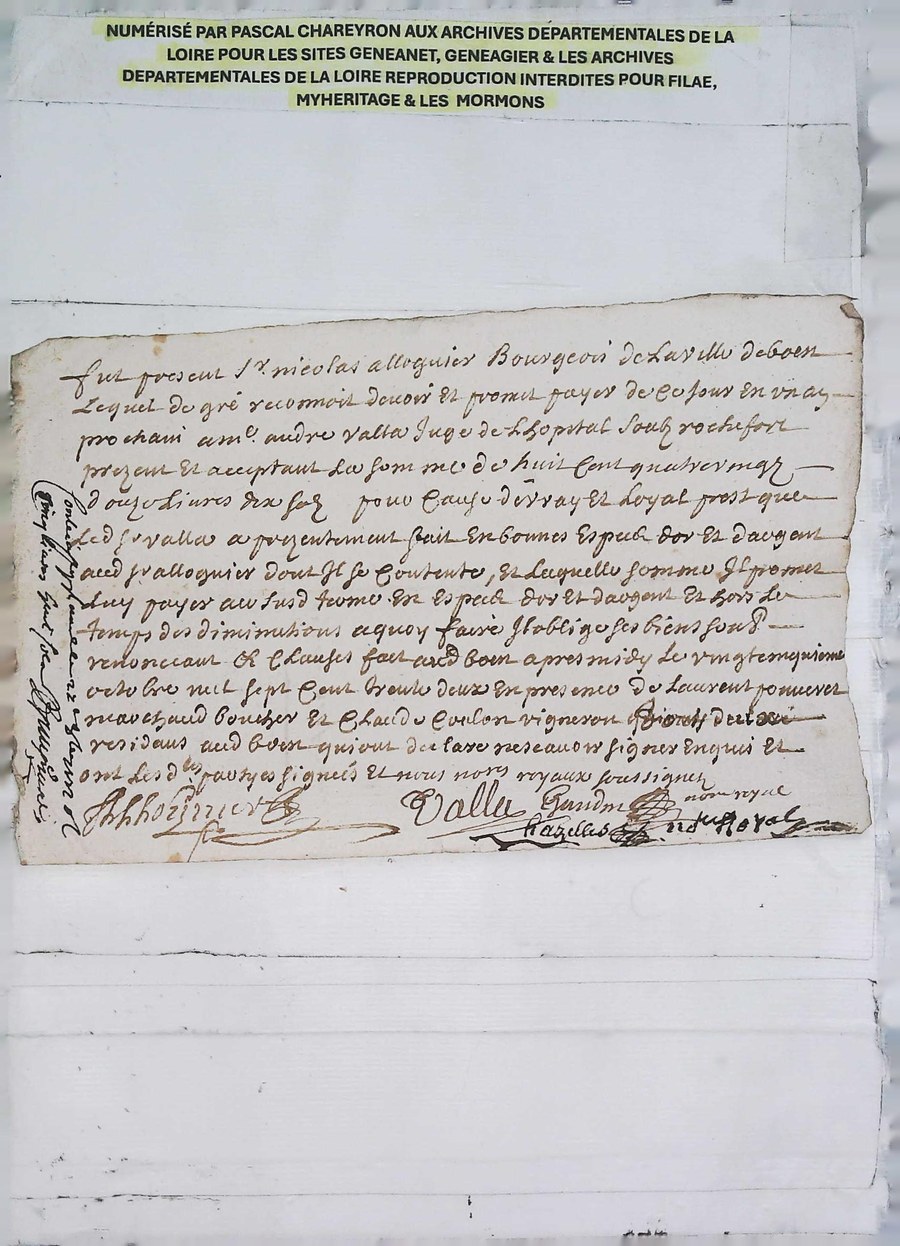 NUMÉRISÉ PAR PASCAL CHAREYRON AUX ARCHIVES DÉPARTEMENTALES DE LA
LOIRE POUR LES SITES GENEANET, GENEAGIER & LES ARCHIVES
DEPARTEMENTALES DE LA LOIRE REPRODUCTION INTERDITES POUR FILAE,
MYHERITAGE & LES MORMONS
fut present Sr. nicolas alloquier Bourgeois de La ville de boen
Lequel de gré reconnoit devoir Et promet payer de Ce Jour En un an
prochain a me. andre valla Juge de Lhopital Soubz rochefort
prezent Et acceptant La somme de huit Cent quatrevingz
douze Livres dix solz pour Cause de vray Et Loyal prest que
Led Sr valla a prezentement fait En bonnes Especes dor Et dargent
aud Sr alloquier dont Il se Contente, Et Laquelle somme Il promet
Luy payer au susd terme En Especes dor Et dargent Et hors Le
temps des diminutions a quoy faire Il oblige ses biens
renonceant Clauses fait aud boen apres midy Le vingt cinquieme
octobre mil sept Cent trente deux En presence de Laurent pouveret
marchand boucher Et Claude Coulon vigneron
residans aud boen qui ont declaré ne scavoir signer Enquis Et
ont Les dtes partyes signées Et nous nores royaux soussignez
Valla nore royal
Chazelles Royal